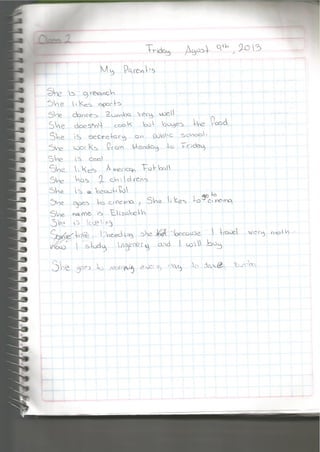 Class 2
Friday, Agust 9th, 2013
My Parents
She is
She likes sports
She dances Zumba very well
She doesn't cook but buyes the food
She is secretary on public school
She works from Monday to Friday
She is cool
She likes American Futball
She has 2 childrens
She is a beautiful
She goes to cinema, She likes to go to cinema
She name is Elizabeth
She is
she because I travel very
now I study and I will buy
She goes to every day to